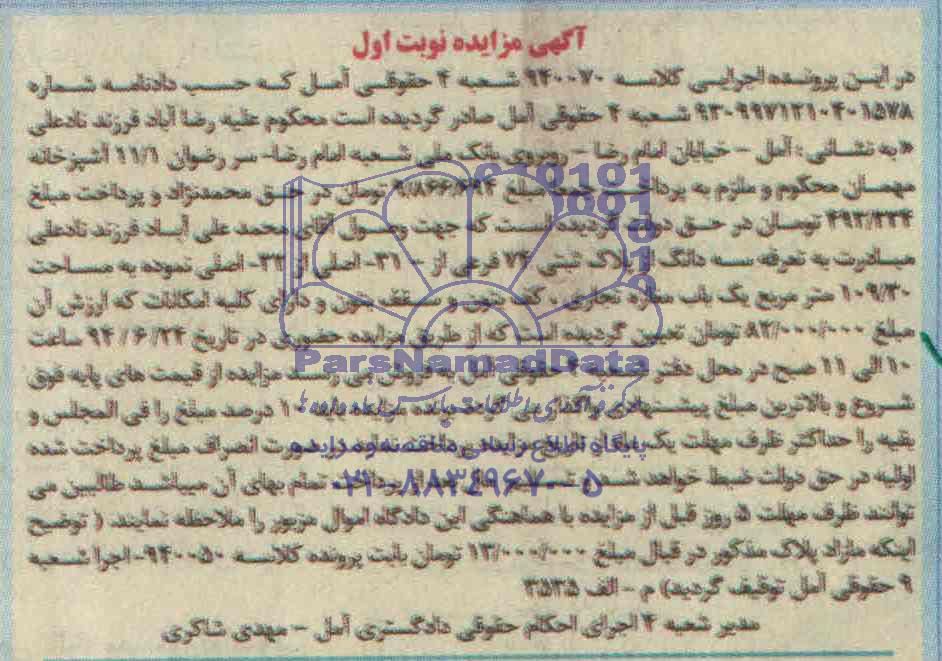 آگهی مزایده نوبت اول
در این پرونده اجرایی کلاسه ۹۴۰۰۷۰ شعبه ۴ حقوقی آمل که حسب دادنامه شماره
۹۳۰۹۹۷۱۲۱۰۴۰۱۵۷۸ شعبه ۴ حقوقی آمل صادر گردیده است محکوم علیه رضا آباد فرزند نادعلی
به نشانی : آمل – خیابان امام رضا – روبروی بانک ملی شعبه امام رضا- سر رضوان ۱۱/۱ آشپزخانه
مهمان محکوم و ملزم به پرداخت جمعا مبلغ تومان در حق محمدنژاد و پرداخت مبلغ
۴۹۳/۳۳۴ تومان در حق دولت گردیده است که جهت وصول آقای محمد علی آباد فرزند نادعلی
مبادرت به تعرفه سه دانگ از پلاک ثبتی ۷۴ فرعی از ۳۱۰- اصلی از ۳۲- اصلی نموده به مساحت
۱۰۹/۳۰ متر مربع یک باب مغازه تجاری ، کف بتون و سقف بتون و دارای کلیه امکانات که ارزش آن
مبلغ ۸۲/۰۰۰/۰۰۰ تومان تعیین گردیده است که از طریق مزایده حضوری در تاریخ ۹۴/۶/۲۴ ساعت
۱۰ الی ۱۱ صبح در محل دفتر حقوقی آمل به فروش می رسد مزایده از قیمت های پایه فوق
شروع و بالاترین مبلغ پیشنهادی برنده مزایده ۱۰ درصد مبلغ را فی المجلس و
بقیه را حداکثر ظرف مهلت یک ماه صورت انصراف مبلغ پرداخت شده
اولیه در حق دولت ضبط خواهد شد تمام بهای آن میباشد طالبین می
توانند ظرف مهلت ۵ روز قبل از مزایده با هماهنگی این دادگاه اموال مزبور را ملاحظه نمایند. ( توضیح
اینکه مازاد پلاک مذکور در قبال مبلغ ۱۳/۰۰۰/۰۰۰ تومان بابت پرونده کلاسه ۹۴۰۰۵۰- اجرا شعبه
۹ حقوقی آمل توقیف گردید) م - الف ۳۵۳۵
مدیر شعبه ۴ اجرای احکام حقوقی دادگستری آمل – مهدی شاکری
ParsNamadData
پایگاه اطلاع رسانی مناقصه و مزایده
۰۲۱-۸۸۳۴۹۶۷۰-۵